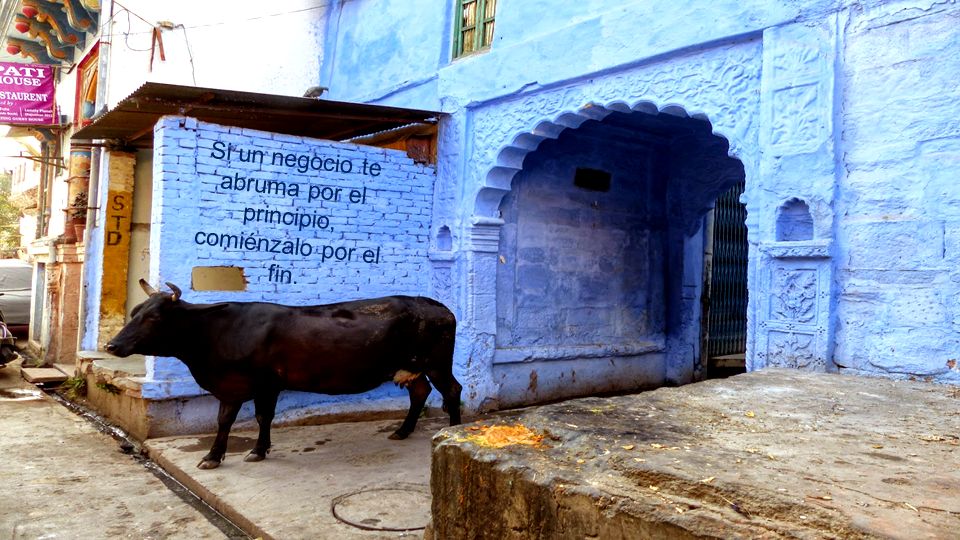 PATI
HOUSE
STAURENT
STD
Si un negocio te
abruma por el
principio,
comiénzalo por el
fin.